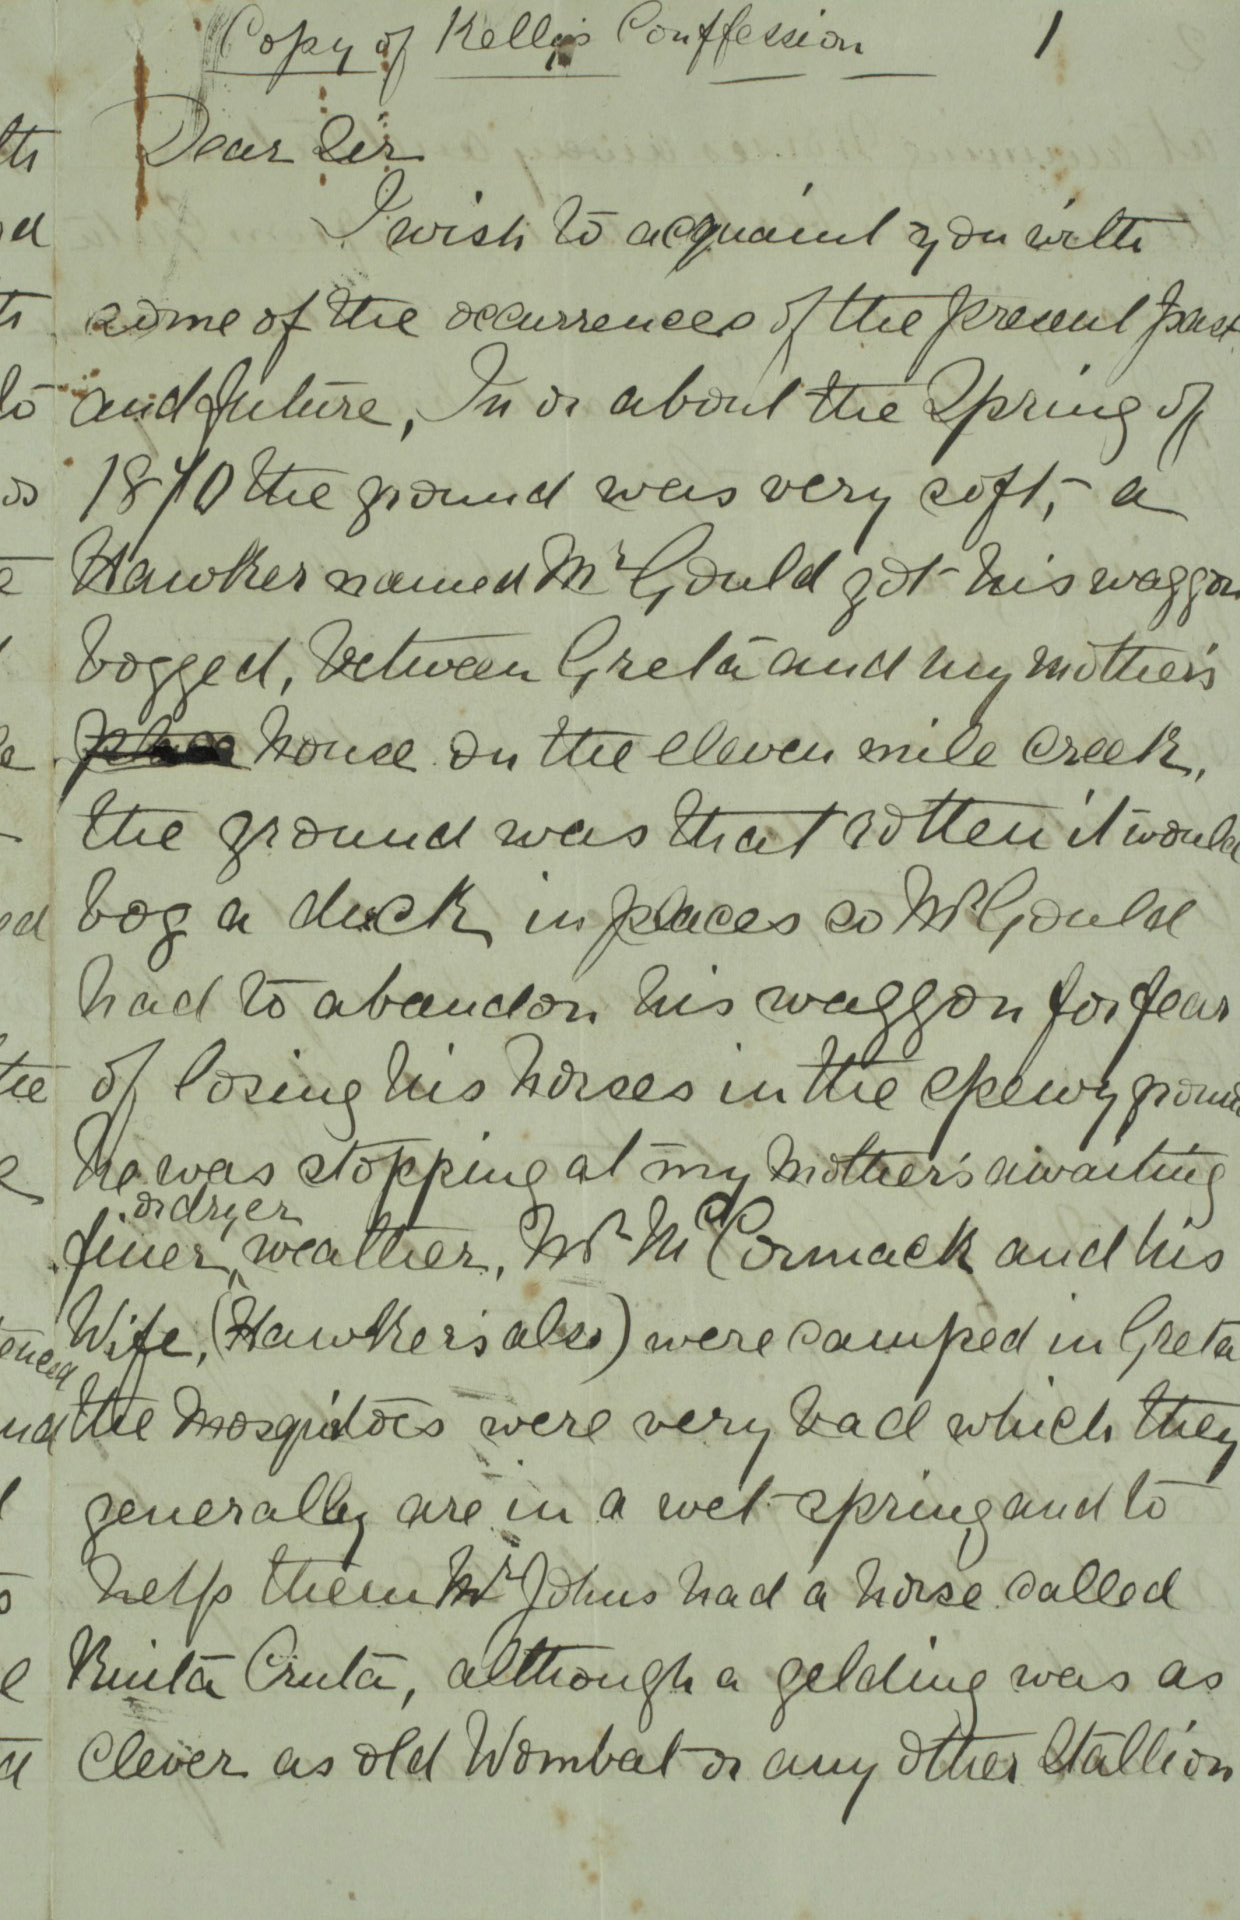 Copy of Kelly's Conffession 1
Dear Sir
I wish to acquaint you with
some of the occurrences of the present past
and future, In or about the Spring of
1870 the ground was very soft, - a
Hawker named Mr Gould got his waggon
bogged, between Greta and my mother's
place house on the eleven mile creek,
the ground was that rotten it would
bog a duck in places so Mr Gould
had to abandon his waggon for fear
of losing his horses in the spewy ground
he was stopping at my Mother's awaiting
or dryer
finer, weather, Mr McCormack and his
Wife, (Hawkers also) were camped in Greta
the mosquitoes were very bad which they
generally are in a wet spring and to
help them Mr Johns had a horse called
Ruita Cruta, although a gelding was as
clever as old Wombat or any other Stallion